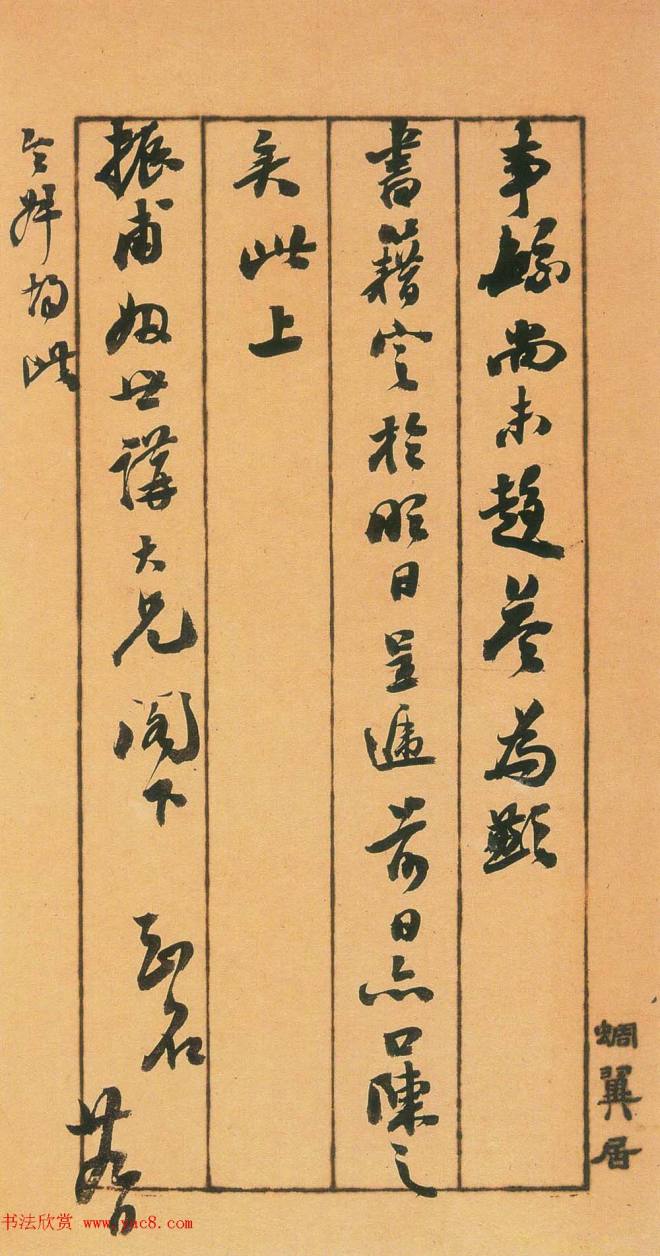 事 尚未趨答為歉
書籍定於明日呈遞前日亦口陳之
矣此上
振甫姻世講大兄閣下 名 廿九日
蜩翼居
书法欣赏 www.yac8.com